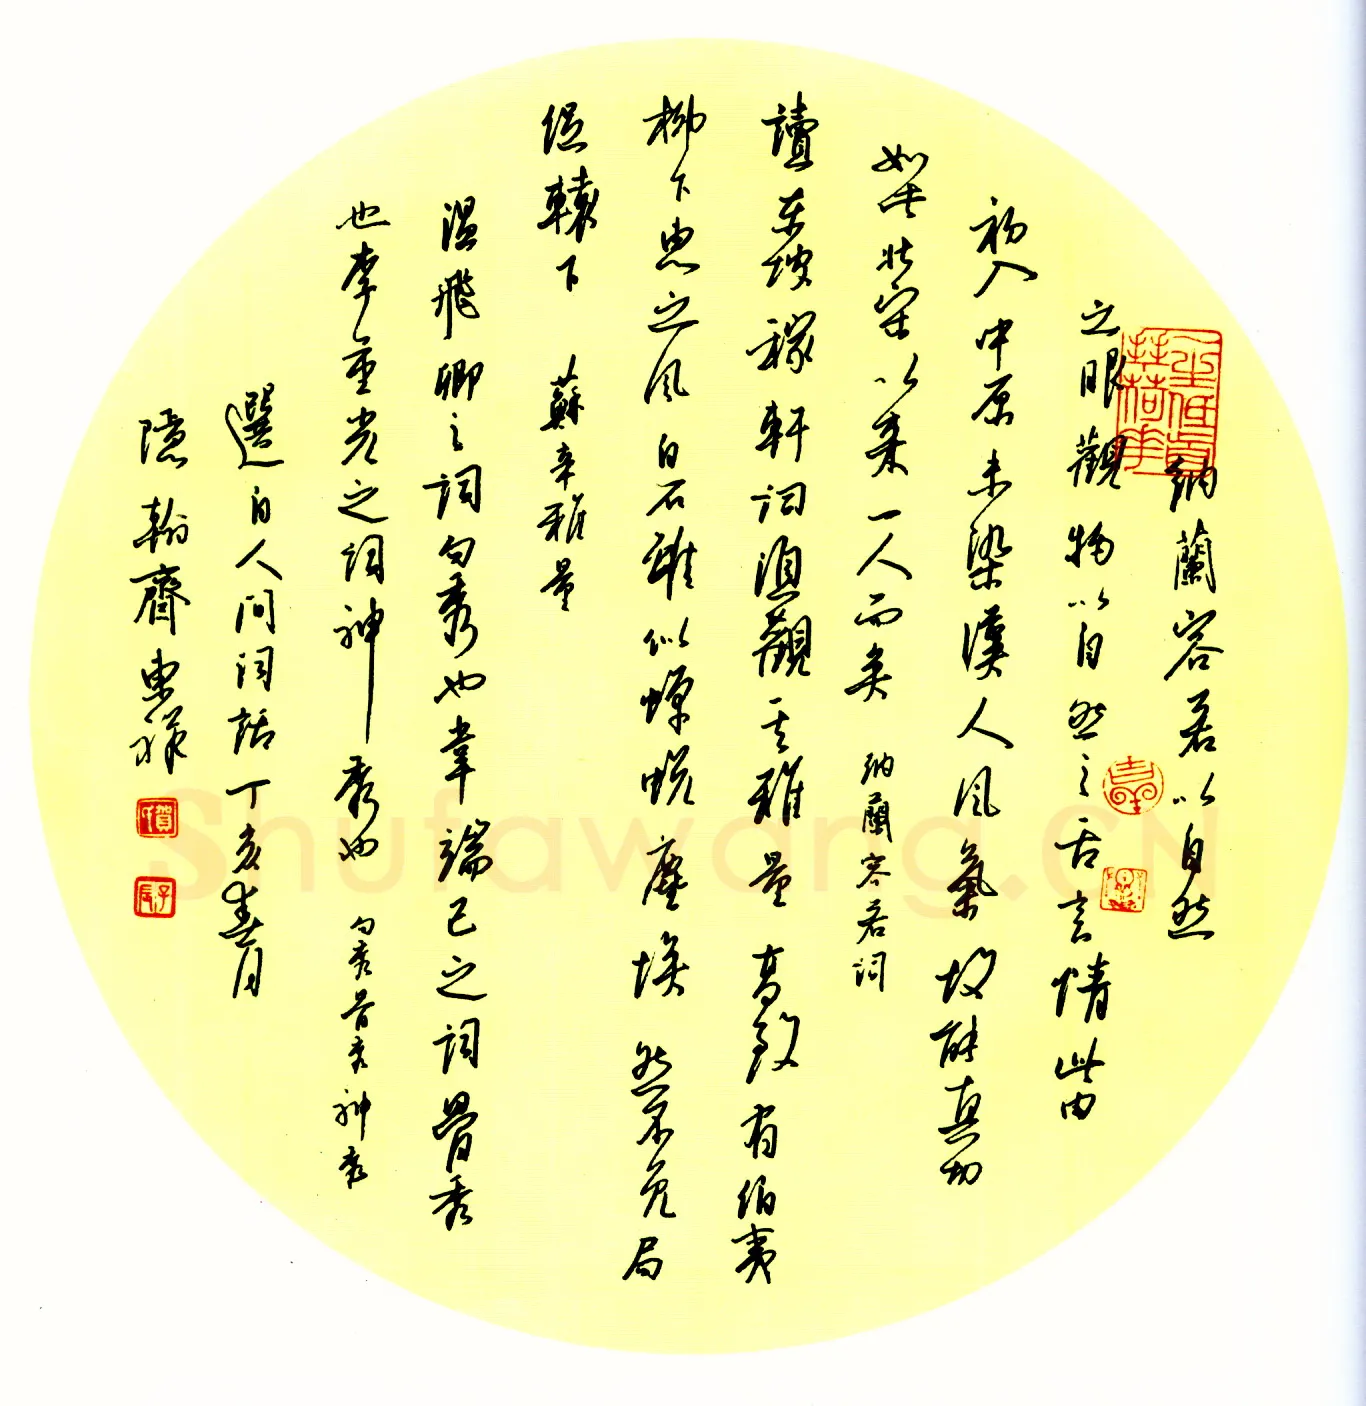 納蘭容若以自然
之眼觀物以自然之舌言情此由
初入中原未染漢人風氣故能真切
如此北宋以來一人而矣 納蘭容若詞
讀東坡稼軒詞須觀其雅量高致有伯夷
柳下惠之風白石雖似蟬蛻塵埃然不免局
促轅下 蘇辛雅量
溫飛卿之詞句秀也韋端己之詞骨秀
也李重光之詞神秀也 句秀骨秀神秀
選自人間詞話丁亥春月
隱翰齋東祥
Shufawang.CN